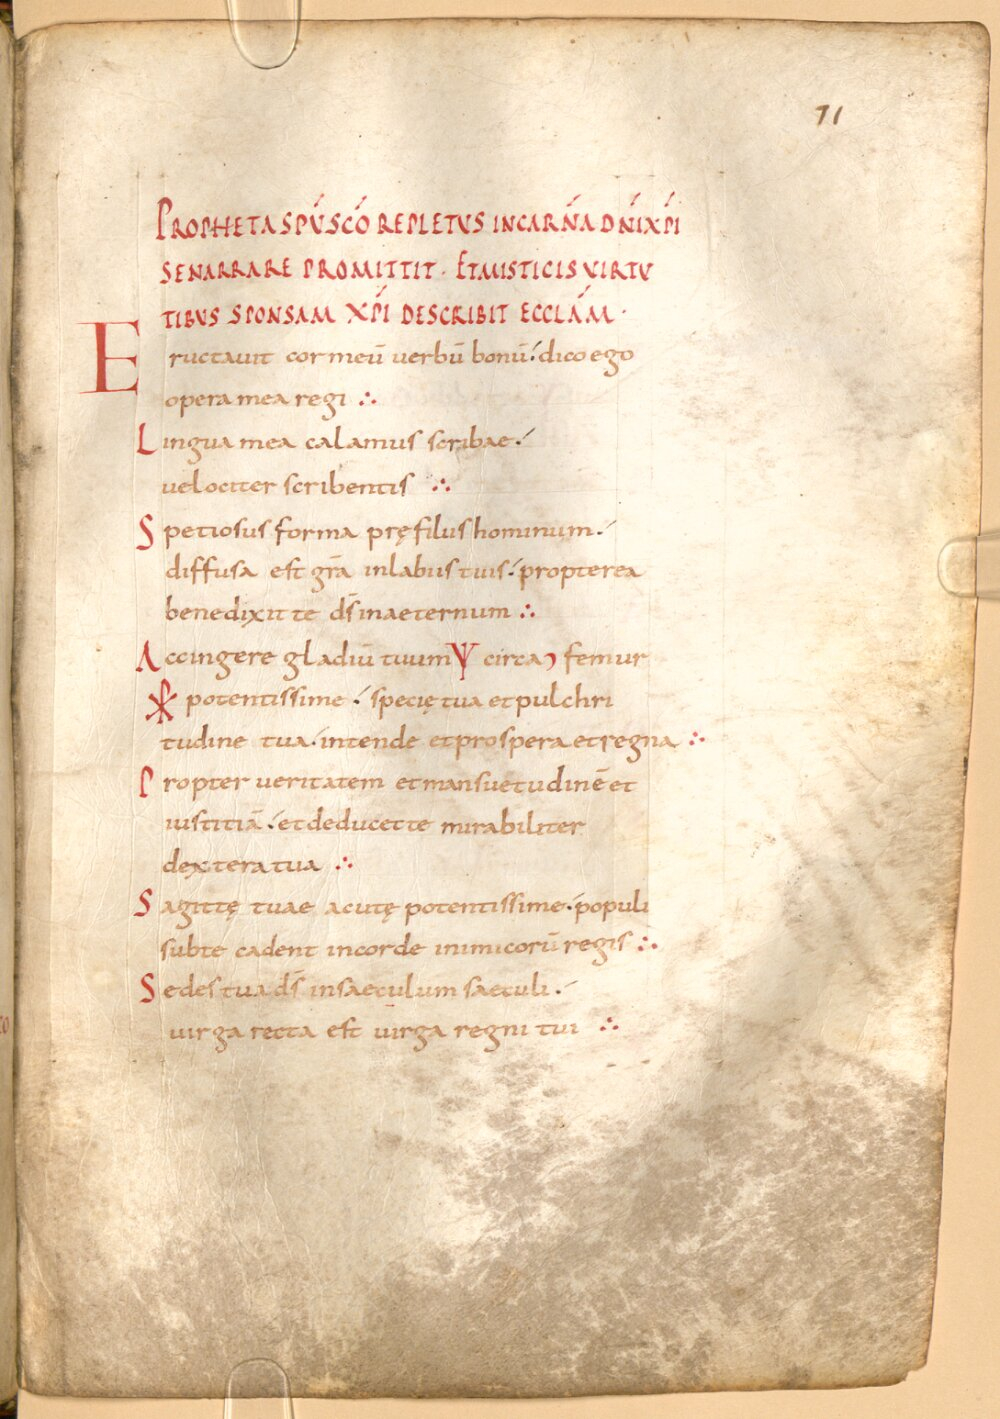 71
PROPHETA SPŪ SCŌ REPLETUS INCARN̄A DN̄I XP̄I
SE NARRARE PROMITTIT · ET MISTICIS VIRTU
TIBUS SPONSAM XP̄I DESCRIBIT ECCLĀM ·
Eructauit cor meū uerbū bonū: dico ego
opera mea regi ∴
Lingua mea calamus scribae:
uelociter scribentis ∴
Spetiosus forma prę filus hominum:
diffusa est gr̄a in labiis tuis: propterea
benedixit te d̄s in aeternum ∴
Accingere gladiū tuum Ψ circa femur
potentissime: specię tua et pulchri
tudine tua: intende et prospera et regna ∴
Propter ueritatem et mansuetudinē et
iustitiā: et deducet te mirabiliter
dextera tua ∴
Sagittę tuae acutę potentissime: populi
sub te cadent in corde inimicorū regis ∴
Sedes tua d̄s in saeculum saeculi:
uirga recta est uirga regni tui ∴